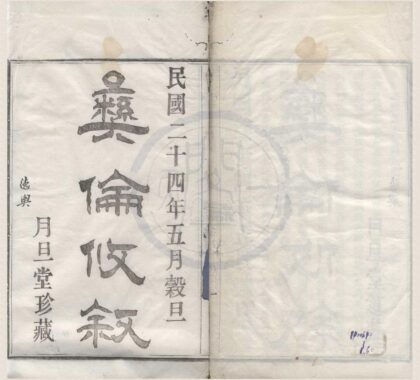 民國二十四年五月穀旦
彝倫攸叙
德興
月旦堂珍藏